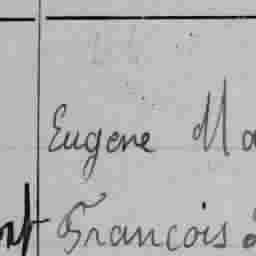 Eugene Ma
François